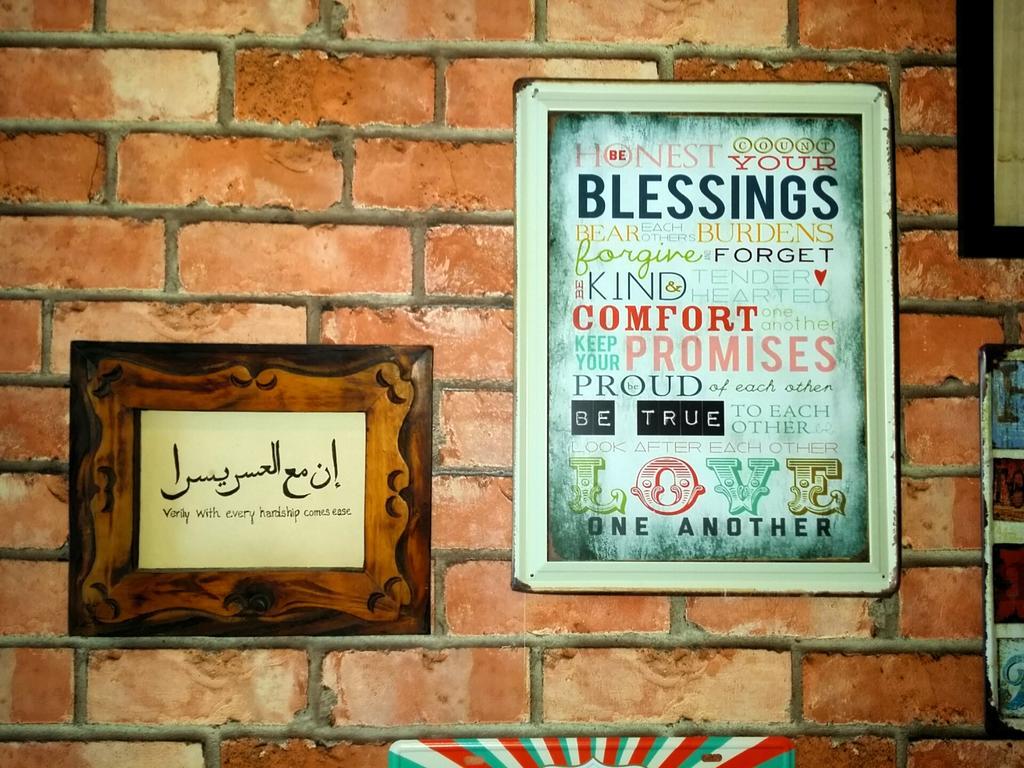 إن مع العسر يسرا
Verily with every hardship comes ease
BE HONEST
COUNT YOUR
BLESSINGS
BEAR EACH OTHERS BURDENS
forgive AND FORGET
BE KIND & TENDER HEARTED
COMFORT one another
KEEP YOUR PROMISES
be PROUD of each other
BE TRUE TO EACH OTHER
LOOK AFTER EACH OTHER
LOVE
ONE ANOTHER